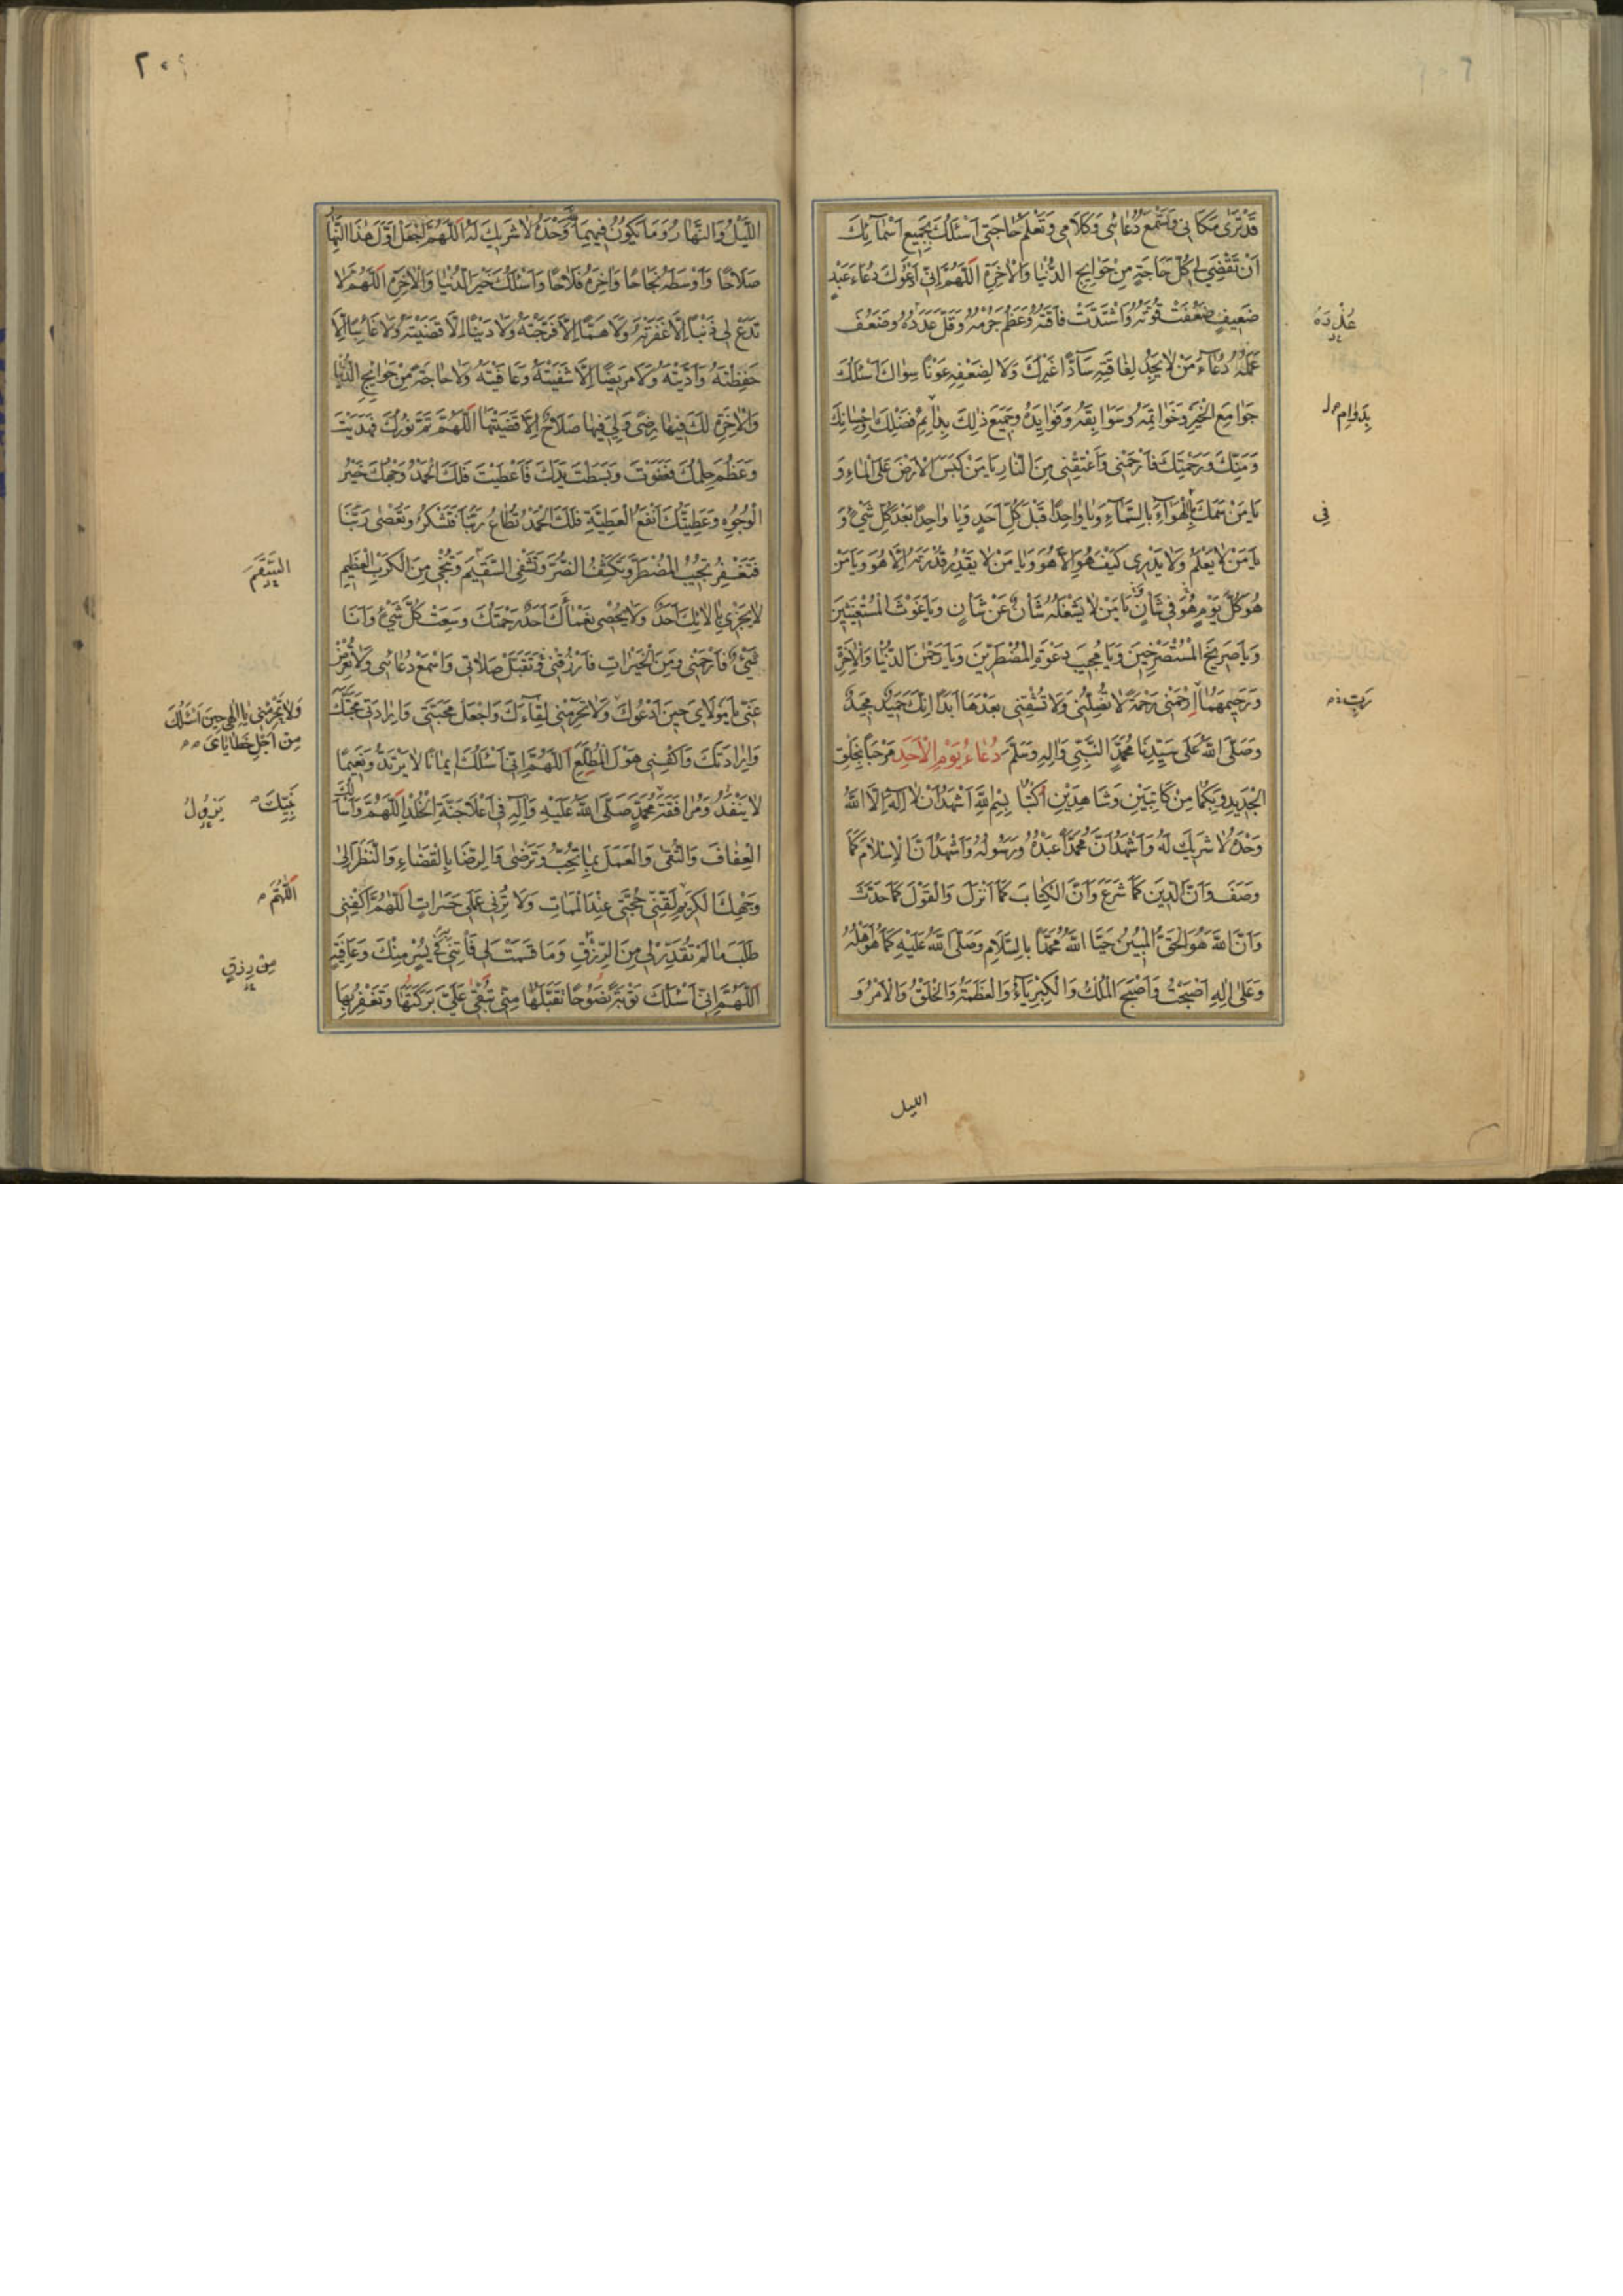 قَدْ تَرىٰ مَكَانِى وَتَسْمَعُ دُعَائِى وَكَلَامِى وَتَعْلَمُ حَاجَتِى اَسْئَلُكَ بِجَمِيعِ اَسْمَآئِكَ
اَنْ تَقْضِىَ لِى كُلَّ حَاجَةٍ مِنْ حَوَائِجِ الدُّنْيَا وَالْاٰخِرَةِ اَللّٰهُمَّ اِنِّى اَدْعُوكَ دُعَاءَ عَبْدٍ
ضَعِيفٍ ضَعُفَتْ قُوَّتُهُ وَاشْتَدَّتْ فَاقَتُهُ وَعَظُمَ جُرْمُهُ وَقَلَّ عَدَدُهُ وَضَعُفَ
عَمَلُهُ دُعَاءَ مَنْ لَا يَجِدُ لِفَاقَتِهِ سَآدًّا غَيْرَكَ وَلَا لِضَعْفِهِ عَوْنًا سِوَاكَ اَسْئَلُكَ
جَوَامِعَ الْخَيْرِ وَخَوَاتِمَهُ وَسَوَابِقَهُ وَفَوَايِدَهُ وَجَمِيعَ ذٰلِكَ بِدَائِمِ فَضْلِكَ وَاِحْسَانِكَ
وَمَنِّكَ وَرَحْمَتِكَ فَارْحَمْنِى وَاَعْتِقْنِى مِنَ النَّارِ يَا مَنْ كَبَسَ الْاَرْضَ عَلَى الْمَاءِ وَ
يَا مَنْ سَمَكَ الْهَوَآءَ بِالسَّمَآءِ وَيَا وَاحِدًا قَبْلَ كُلِّ اَحَدٍ وَيَا وَاحِدًا بَعْدَ كُلِّ شَىْءٍ وَ
يَا مَنْ لَا يَعْلَمُ وَلَا يَدْرِى كَيْفَ هُوَ اِلَّا هُوَ وَيَا مَنْ لَا يَقْدِرُ قُدْرَتَهُ اِلَّا هُوَ وَيَا مَنْ
هُوَ كُلَّ يَوْمٍ هُوَ فِى شَانٍ يَا مَنْ لَا يَشْغَلُهُ شَانٌ عَنْ شَانٍ وَيَا غَوْثَ الْمُسْتَغِيثِينَ
وَيَا صَرِيخَ الْمُسْتَصْرِخِينَ وَيَا مُجِيبَ دَعْوَةِ الْمُضْطَرِّينَ وَيَا رَحْمٰنَ الدُّنْيَا وَالْاٰخِرَةِ
وَرَحِيمَهُمَا اِرْحَمْنِى رَحْمَةً لَا تُضِلُّنِى وَلَا تُشْقِنِى بَعْدَهَا اَبَدًا اِنَّكَ حَمِيدٌ مَجِيدٌ
وَصَلَّى اللّٰهُ عَلَى سَيِّدِنَا مُحَمَّدٍ النَّبِىِّ وَاٰلِهِ وَسَلَّمَ دُعَاءُ يَوْمِ الْاَحَدِ مَرْحَبًا بِخَلْقِ
الْجَدِيدِ وَبِكُمَا مِنْ كَاتِبَيْنِ وَشَاهِدَيْنِ اُكْتُبَا بِسْمِ اللّٰهِ اَشْهَدُ اَنْ لَا اِلٰهَ اِلَّا اللّٰهُ
وَحْدَهُ لَا شَرِيكَ لَهُ وَاَشْهَدُ اَنَّ مُحَمَّدًا عَبْدُهُ وَرَسُولُهُ وَاَشْهَدُ اَنَّ الْاِسْلَامَ كَمَا
وَصَفَ وَاَنَّ الدِّينَ كَمَا شَرَعَ وَاَنَّ الْكِتَابَ كَمَا اَنْزَلَ وَالْقَوْلَ كَمَا حَدَّثَ
وَاَنَّ اللّٰهَ هُوَ الْحَقُّ الْمُبِينُ حَيَّا اللّٰهُ مُحَمَّدًا بِالسَّلَامِ وَصَلَّى اللّٰهُ عَلَيْهِ كَمَا هُوَ اَهْلُهُ
وَعَلَى اٰلِهِ اَصْبَحْتُ وَاَصْبَحَ الْمُلْكُ وَالْكِبْرِيَآءُ وَالْعَظَمَةُ وَالْخَلْقُ وَالْاَمْرُ وَ
بِدَوَامِ
فِى
رَبِّ
الليل
اللَّيْلُ وَالنَّهَارُ وَمَا يَكُونُ فِيهِمَا لِلّٰهِ وَحْدَهُ لَا شَرِيكَ لَهُ اَللّٰهُمَّ اجْعَلْ اَوَّلَ هٰذَا النَّهَارِ
صَلَاحًا وَاَوْسَطَهُ نَجَاحًا وَاٰخِرَهُ فَلَاحًا وَاَسْئَلُكَ خَيْرَ الدُّنْيَا وَالْاٰخِرَةِ اَللّٰهُمَّ لَا
تَدَعْ لِى ذَنْبًا اِلَّا غَفَرْتَهُ وَلَا هَمًّا اِلَّا فَرَّجْتَهُ وَلَا دَيْنًا اِلَّا قَضَيْتَهُ وَلَا غَائِبًا اِلَّا
حَفِظْتَهُ وَاَدَّيْتَهُ وَلَا مَرِيضًا اِلَّا شَفَيْتَهُ وَعَافَيْتَهُ وَلَا حَاجَةً مِنْ حَوَائِجِ الدُّنْيَا
وَالْاٰخِرَةِ لَكَ فِيهَا رِضًى وَلِىَ فِيهَا صَلَاحٌ اِلَّا قَضَيْتَهَا اَللّٰهُمَّ تَمَّ نُورُكَ فَهَدَيْتَ
وَعَظُمَ حِلْمُكَ فَعَفَوْتَ وَبَسَطْتَ يَدَكَ فَاَعْطَيْتَ فَلَكَ الْحَمْدُ وَجْهُكَ خَيْرُ
الْوُجُوهِ وَعَطِيَّتُكَ اَنْفَعُ الْعَطِيَّةِ فَلَكَ الْحَمْدُ تُطَاعُ رَبَّنَا فَتَشْكُرُ وَتُعْصٰى رَبَّنَا
فَتَغْفِرُ تُجِيبُ الْمُضْطَرَّ وَتَكْشِفُ الضُّرَّ وَتَشْفِى السَّقِيمَ وَتُنْجِى مِنَ الْكَرْبِ الْعَظِيمِ
لَا يَجْزِى بِاٰلَائِكَ اَحَدٌ وَلَا يُحْصِى نَعْمَاءَكَ اَحَدٌ رَحْمَتُكَ وَسِعَتْ كُلَّ شَىْءٍ وَاَنَا
شَىْءٌ فَارْحَمْنِى وَمِنَ الْخَيْرَاتِ فَارْزُقْنِى وَتَقَبَّلْ صَلَاتِى وَاسْمَعْ دُعَائِى وَلَا تُعْرِضْ
عَنِّى يَا مَوْلَاىَ حِينَ اَدْعُوكَ وَلَا تَحْرِمْنِى لِقَآءَكَ وَاجْعَلْ مَحَبَّتِى وَاِرَادَتِى مَحَبَّتَكَ
وَاِرَادَتَكَ وَاكْفِنِى هَوْلَ الْمُطَّلَعِ اَللّٰهُمَّ اِنِّى اَسْئَلُكَ اِيمَانًا لَا يَرْتَدُّ وَنَعِيمًا
لَا يَنْفَدُ وَمُرَافَقَةَ مُحَمَّدٍ صَلَّى اللّٰهُ عَلَيْهِ وَاٰلِهِ فِى اَعْلَا جَنَّةِ الْخُلْدِ اَللّٰهُمَّ وَاَسْاَلُكَ
الْعِفَافَ وَالتُّقٰى وَالْعَمَلَ بِمَا تُحِبُّ وَتَرْضٰى وَالرِّضَا بِالْقَضَاءِ وَالنَّظَرَ اِلٰى
وَجْهِكَ الْكَرِيمِ لَقِّنِّى حُجَّتِى عِنْدَ الْمَمَاتِ وَلَا تُرِنِى عَمَلِى حَسَرَاتٍ اَللّٰهُمَّ اكْفِنِى
طَلَبَ مَا لَمْ تُقَدِّرْ لِى مِنَ الرِّزْقِ وَمَا قَسَمْتَ لِى فَاْتِنِى بِهِ فِى يُسْرٍ مِنْكَ وَعَافِيَةٍ
اَللّٰهُمَّ اِنِّى اَسْئَلُكَ تَوْبَةً نَصُوحًا تَقَبَّلْهَا مِنِّى تُبْقِى عَلَىَّ بَرَكَتَهَا وَتَغْفِرُ بِهَا
السَّقَمَ
وَلَا تَحْرِمْنِى يَا اِلٰهِى حِينَ اَسْئَلُكَ
مِنْ اَجْلِ خَطَايَاىَ
نَبِيِّكَ يَزُولُ
اَللّٰهُمَّ
مِنْ رِزْقٍ